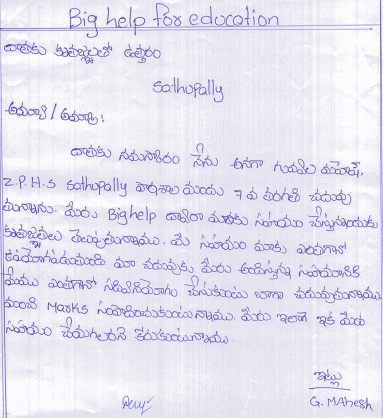 Big help for education
దాతకు కృతజ్ఞతలతో ఉత్తరం
Sathupally
అమ్మా / అయ్యా :
దాతకు నమస్కారం నేను అనగా మహేష్.
Z.P.H.S Sathupally పాఠశాల యందు 7 వ తరగతి చదువు
తున్నాను. మీరు Bighelp ద్వారా మాకు సహాయం చేస్తున్నందుకు
కృతజ్ఞతలు తెలుపుతున్నాము. మీ సహాయం మాకు ఎంతగానో
ఉపయోగపడుతుంది మా చదువుకు మీరు అందిస్తున్న సహాయానికి
మేము ఎంతగానో సద్వినియోగం చేసుకుంటు బాగా చదువుతున్నాము
మంచి Marks సంపాదించుకుంటున్నాము. మీరు ఇలాగే ఇక మీదట
సహాయం చేయగలరని కోరుకుంటున్నాము.
ఇట్లు
G. MAhesh